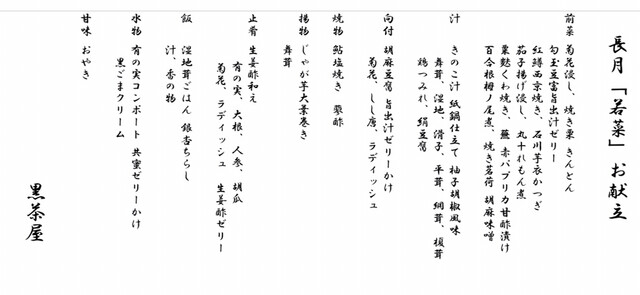 長月「若菜」お献立
前菜 菊花浸し、焼き栗 きんとん
勾玉豆富旨出汁ゼリー
紅鱒西京焼き、石川芋衣かつぎ
茄子揚げ浸し、丸十れもん煮
粟麩くわ焼き、蕪 赤パプリカ甘酢漬け
百合根梅ノ尾煮、焼き茗荷 胡麻味噌
汁 きのこ汁 紙鍋仕立て 柚子胡椒風味
舞茸、湿地、滑子、平茸、網茸、榎茸
鶏つみれ、絹豆腐
向付 胡麻豆腐 旨出汁ゼリーかけ
菊花、しし唐、ラディッシュ
焼物 鮎塩焼き 蓼酢
揚物 じゃが芋大葉巻き
舞茸
止肴 生姜酢和え
有の実、大根、人参、胡瓜
菊花、ラディッシュ 生姜酢ゼリー
飯 湿地茸ごはん 銀杏ちらし
汁、香の物
水物 有の実コンポート 共蜜ゼリーかけ
黒ごまクリーム
甘味 おやき
黒茶屋